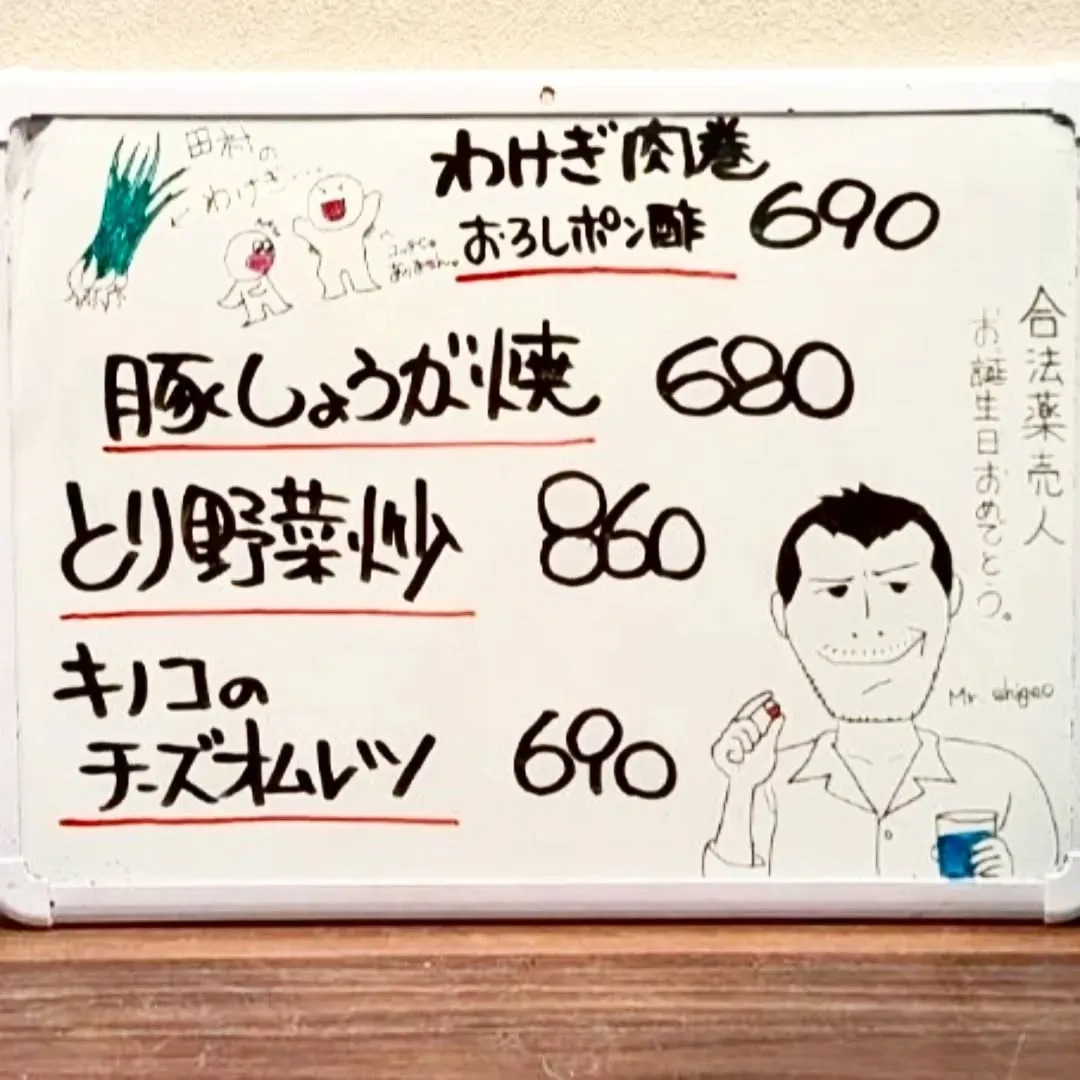 田村の
わけぎ…
わけぎ肉巻
おろしポン酢 690
豚しょうが焼 680
とり野菜炒 860
キノコの
チーズオムレツ 690
合法薬売人
お誕生日おめでとう。
Mr. shigeo